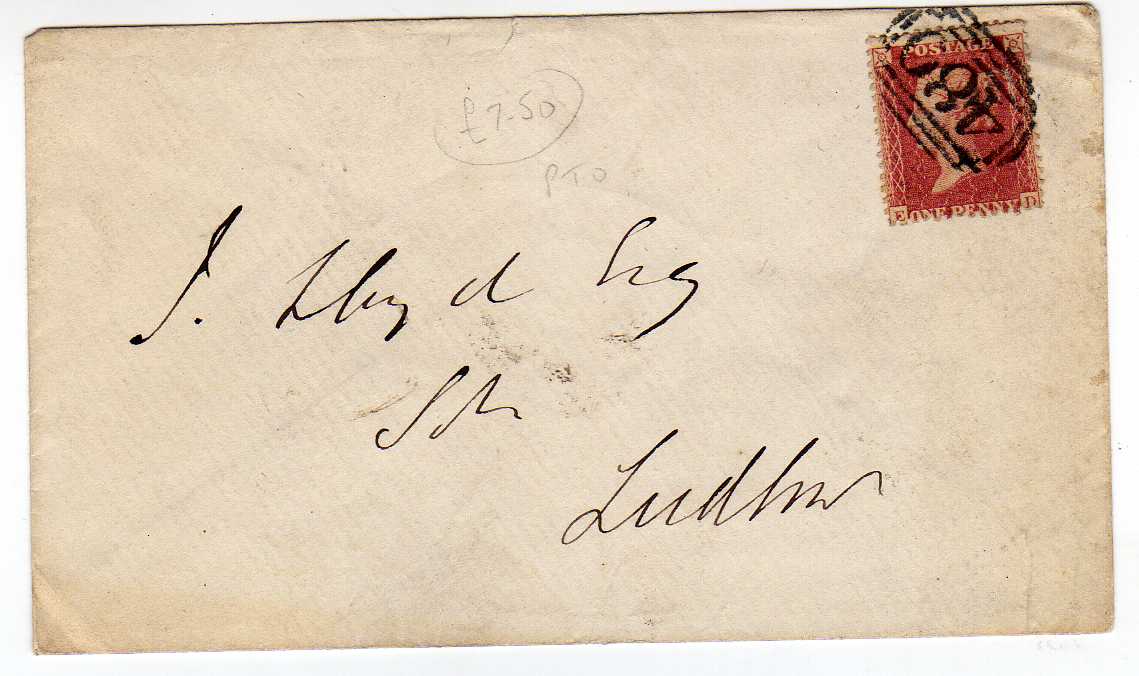 POSTAGE
ONE PENNY
£7-50
PTO
J. Lloyd Esq
Ludlow